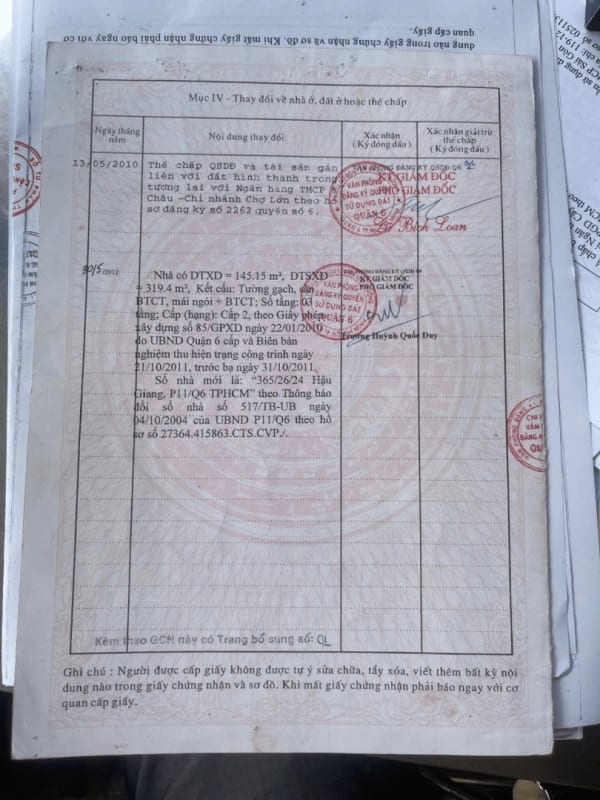 quan cấp giấy.
dung nào trong giấy chứng nhận và sơ đồ. Khi mất giấy chứng nhận phải báo ngay với cơ
Mục IV - Thay đổi về nhà ở, đất ở hoặc thế chấp
Ngày tháng năm
Nội dung thay đổi
Xác nhận
(Ký đóng dấu)
Xác nhận giải trừ thế chấp
(Ký đóng dấu)
13/05/2010
Thế chấp QSDĐ và tài sản gắn
liền với đất hình thành trong
tương lai với Ngân hàng TMCP Á
Châu -Chi nhánh Chợ Lớn theo hồ
sơ đăng ký số 2262 quyển số 6.
VĂN PHÒNG ĐĂNG KÝ QSDĐ Q6
KT. GIÁM ĐỐC
PHÓ GIÁM ĐỐC
VĂN PHÒNG
ĐĂNG KÝ QUYỀN
SỬ DỤNG ĐẤT
QUẬN 6
Bích Loan
30/5/2012
Nhà có DTXD = 145.15 m², DTSXD
= 319.4 m², Kết cấu: Tường gạch, sàn
BTCT, mái ngói + BTCT; Số tầng: 03
tầng; Cấp (hạng): Cấp 2, theo Giấy phép
xây dựng số 85/GPXD ngày 22/01/2010
do UBND Quận 6 cấp và Biên bản
nghiệm thu hiện trạng công trình ngày
21/10/2011, trước bạ ngày 31/10/2011.
Số nhà mới là: “365/26/24 Hậu
Giang, P11/Q6 TPHCM” theo Thông báo
đổi số nhà số 517/TB-UB ngày
04/10/2004 của UBND P11/Q6 theo hồ
sơ số 27364.415863.CTS.CVP./.
VĂN PHÒNG ĐĂNG KÝ QSDĐ Q6
KT. GIÁM ĐỐC
PHÓ GIÁM ĐỐC
VĂN PHÒNG
ĐĂNG KÝ QUYỀN
SỬ DỤNG ĐẤT
QUẬN 6
Trương Huỳnh Quốc Duy
Kèm theo GCN này có Trang bổ sung số: 01
Ghi chú : Người được cấp giấy không được tự ý sửa chữa, tẩy xóa, viết thêm bất kỳ nội
dung nào trong giấy chứng nhận và sơ đồ. Khi mất giấy chứng nhận phải báo ngay với cơ
quan cấp giấy.